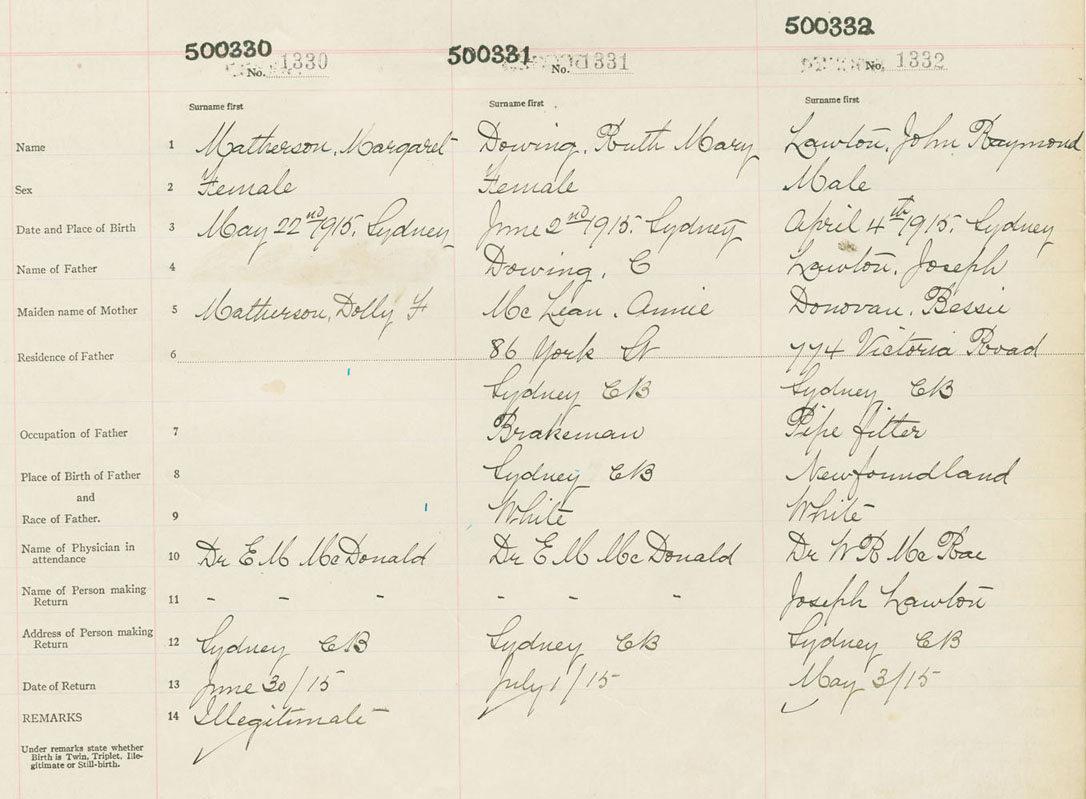 500330 No. 1330 500331 No. 1331 500332 No. 1332
Surname first Surname first Surname first
Name 1 Matherson, Margaret Dowing, Ruth Mary Lawton, John Raymond
Sex 2 Female Female Male
Date and Place of Birth 3 May 22nd 1915, Sydney June 2nd 1915. Sydney April 4th 1915. Sydney
Name of Father 4 Dowing, C Lawton, Joseph
Maiden name of Mother 5 Matherson, Dolly F McLean, Annie Donovan, Bessie
Residence of Father 6 86 York St 774 Victoria Road
Sydney CB Sydney CB
Occupation of Father 7 Brakeman Pipe fitter
Place of Birth of Father 8 Sydney CB Newfoundland
and
Race of Father. 9 White White
Name of Physician in attendance 10 Dr E M McDonald Dr E M McDonald Dr W R McRae
Name of Person making Return 11 - - - - - - Joseph Lawton
Address of Person making Return 12 Sydney CB Sydney CB Sydney CB
Date of Return 13 June 30/15 July 1/15 May 3/15
REMARKS 14 Illegitimate
Under remarks state whether
Birth is Twin, Triplet, Ille-
gitimate or Still-birth.